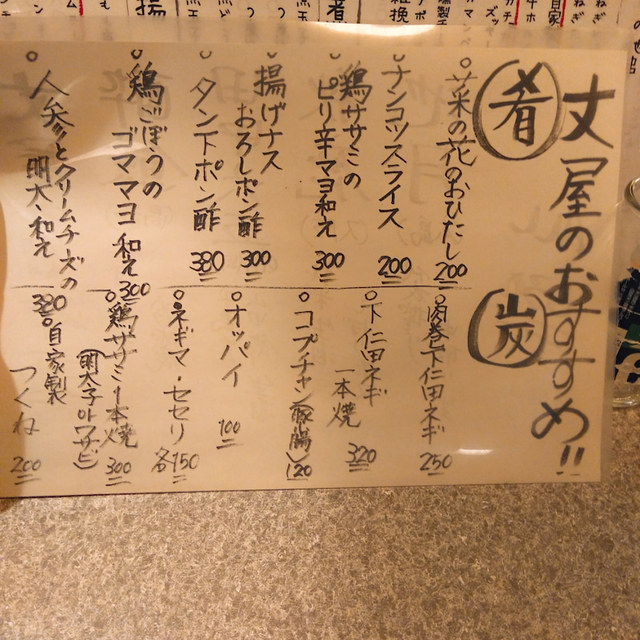 丈屋のおすすめ!!
肴
菜の花のおひたし 200
ナンコツスライス 200
鶏ササミの
ピリ辛マヨ和え 300
揚げナス
おろしポン酢 300
タン下ポン酢 380
鶏ごぼうの
ゴママヨ和え 300
人参とクリームチーズの
明太和え 380
炭
肉巻下仁田ネギ 250
下仁田ネギ
一本焼 320
コプチャン(豚腸) 120
オッパイ 100
ネギマ・セセリ 各150
鶏ササミ一本焼
(明太子 or ワサビ) 300
自家製
つくね 200